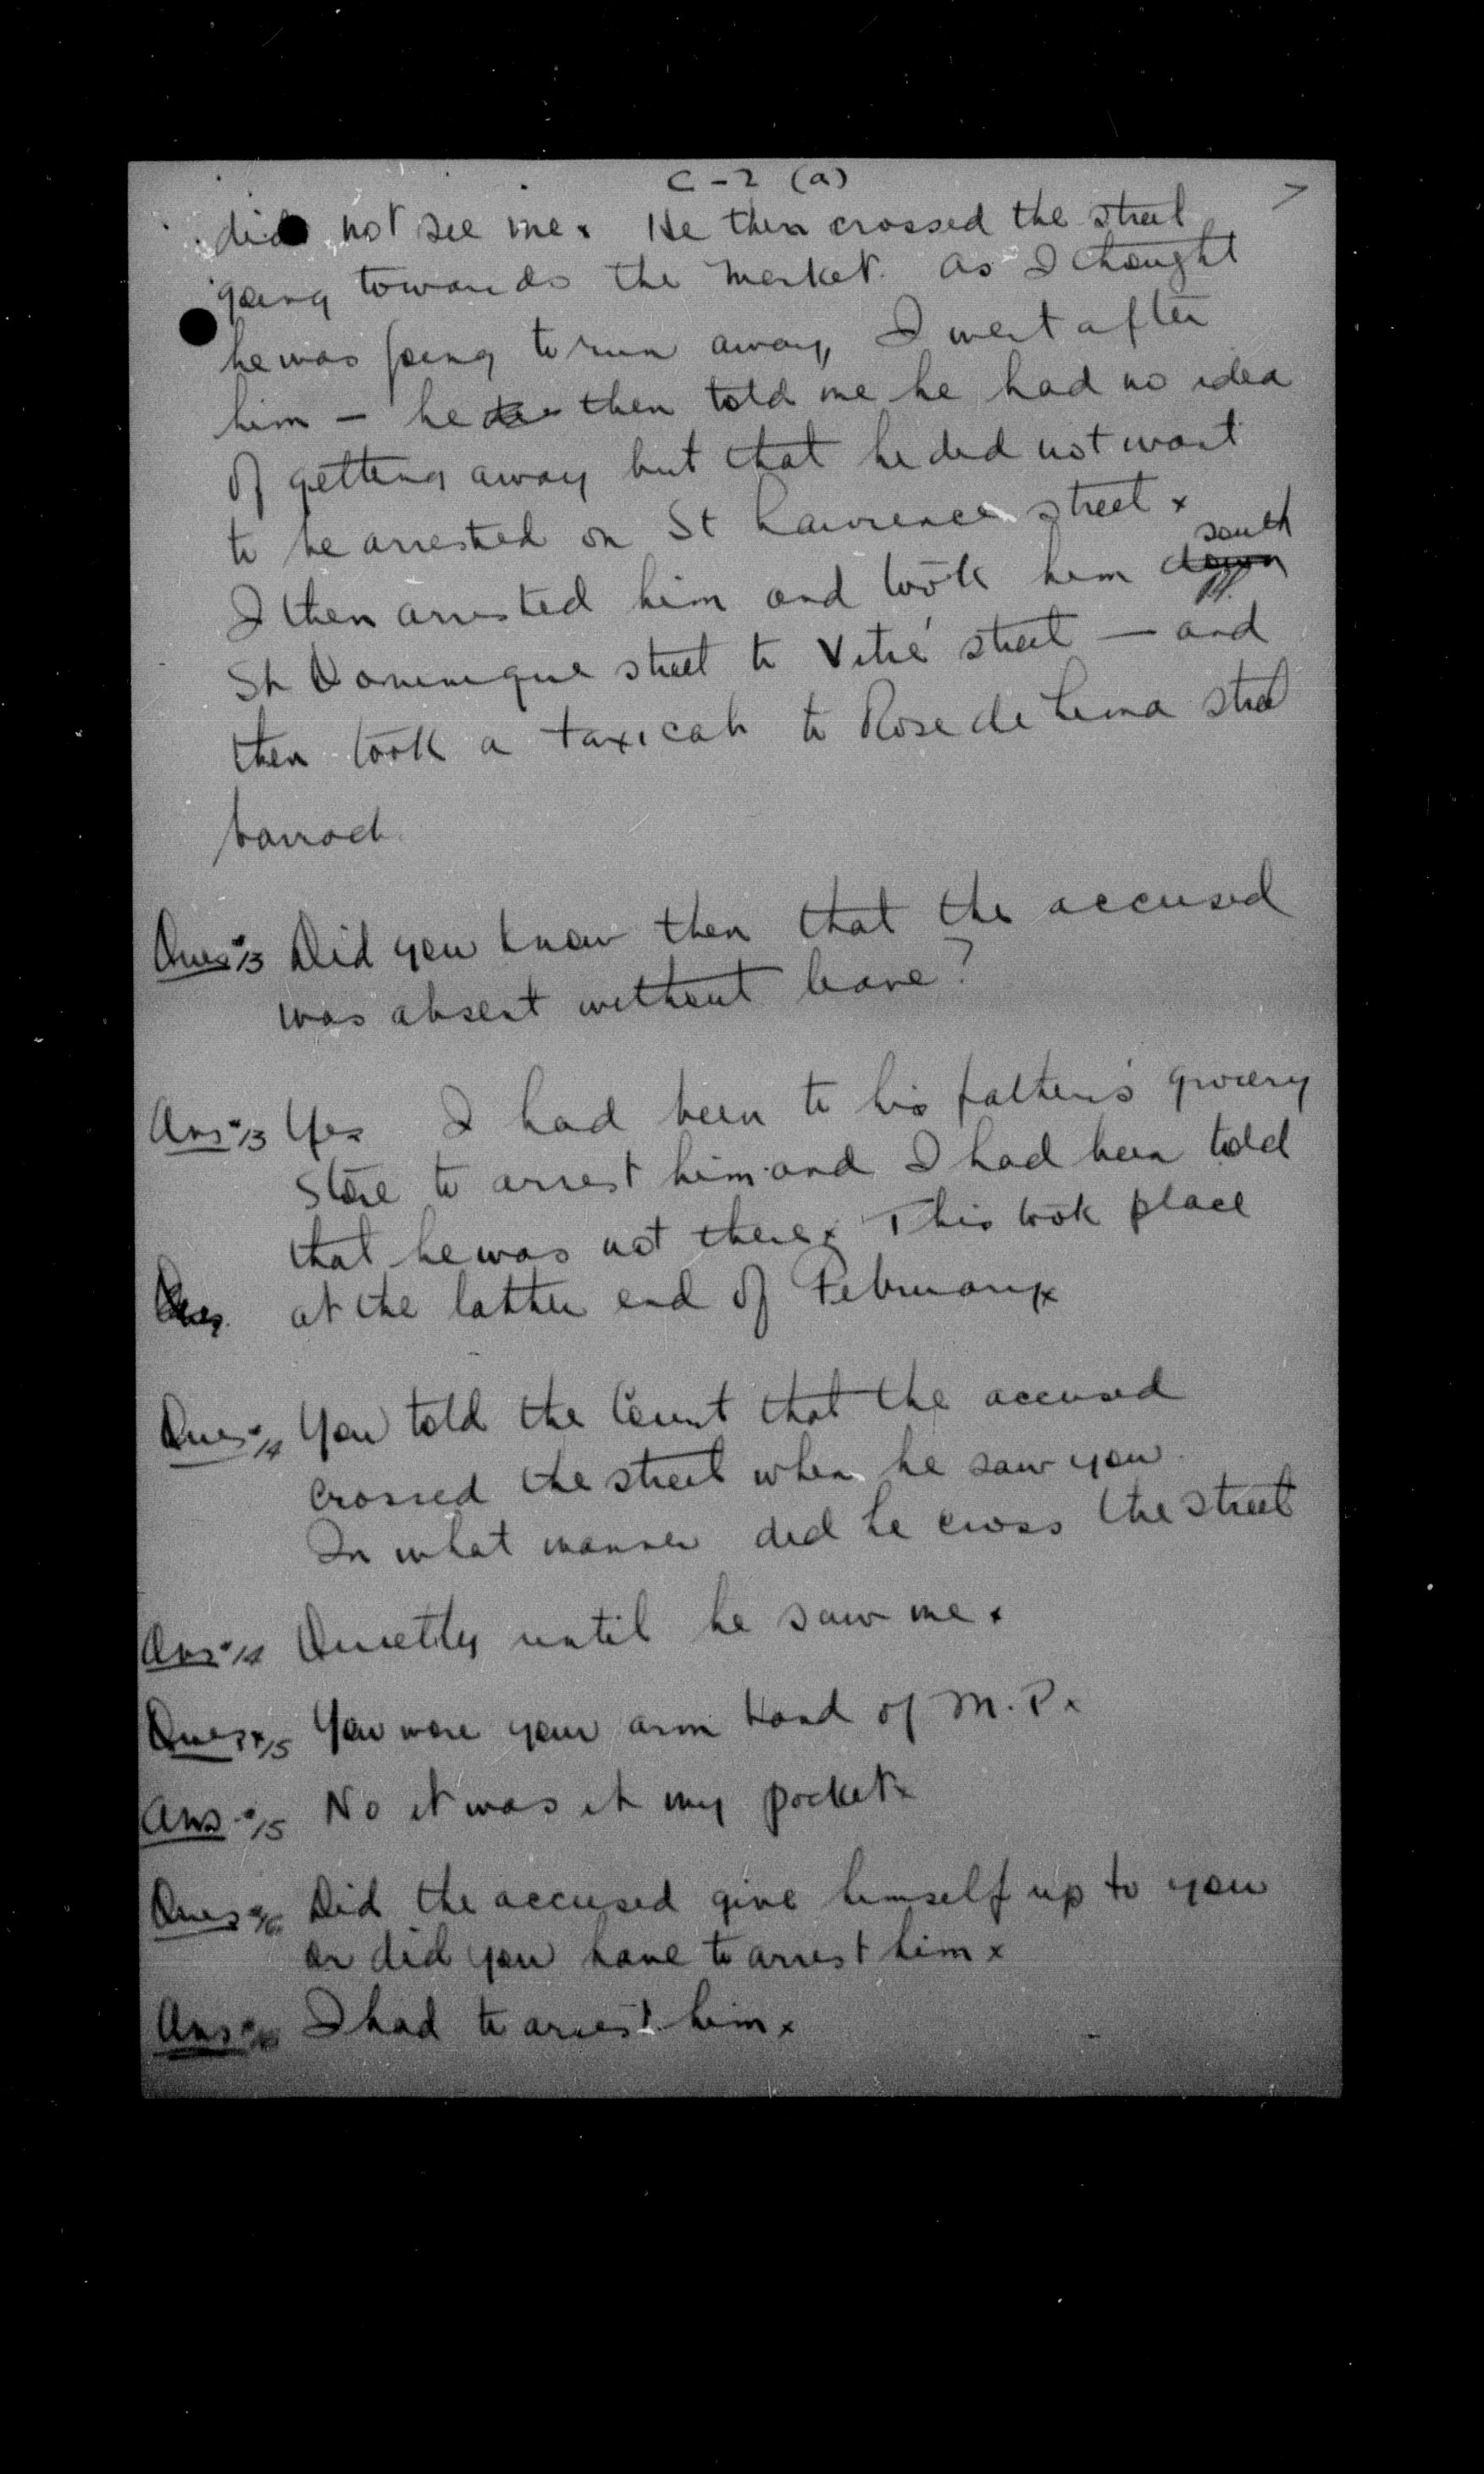 C-2 (a)
7
did not see me x He then crossed the street
going towards the Market. As I thought
he was going to run away, I went after
him – he then told me he had no idea
of getting away but that he did not want
to be arrested on St Lawrence street x
south
I then arrested him and took him down
St Dominique street to Vitré street — and
then took a taxicab to Rose de Lima street
barrack
Ques x 13 Did you know then that the accused
was absent without leave?
Ans x 13 Yes I had been to his father's grocery
store to arrest him and I had been told
that he was not there x This took place
Ques. at the latter end of February x
Ques x 14 You told the Court that the accused
crossed the street when he saw you.
In what manner did he cross the street
Ans x 14 Quietly until he saw me x
Ques x 15 You wore your arm band of M.P. x
Ans x 15 No it was it my pocket x
Ques x 16 Did the accused give himself up to you
or did you have to arrest him x
Ans x 16 I had to arrest him x